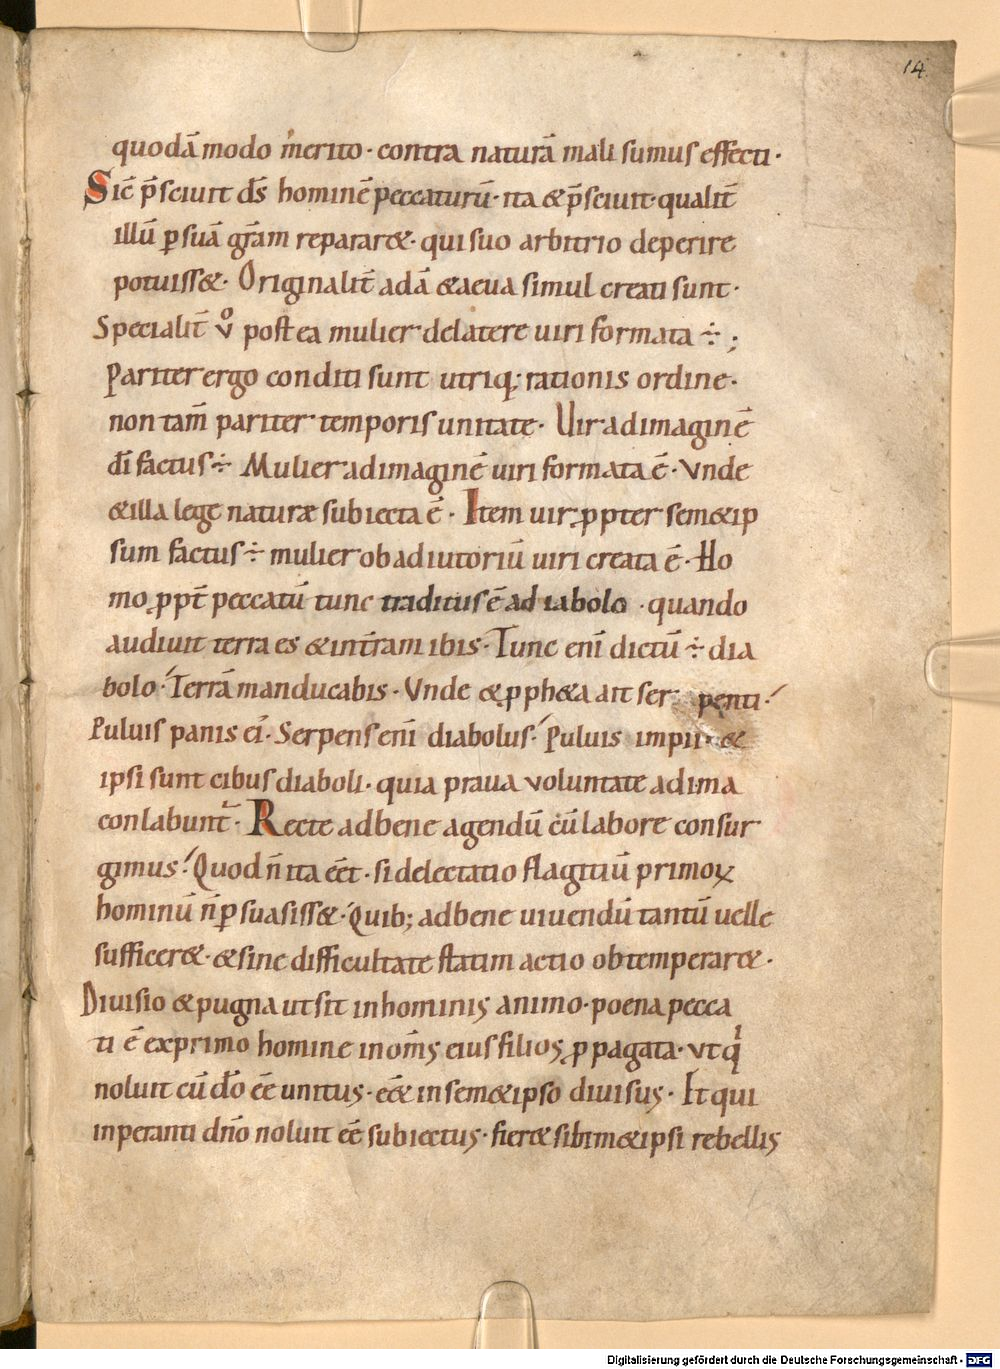 14.
quodā modo merito · contra naturā mali sumus effecti ·
Sic̄ p̄sciuit d̄s hominē peccaturū · ita & p̄sciuit · qualit̄
illū ꝑ suā gr̄am reparar& · qui suo arbitrio deperire
potuiss& · Originalit̄ adā & aeua simul creati sunt ·
Specialit̄ vͦ postea mulier de latere uiri formata ÷ ;
Pariter ergo conditi sunt utriq; rationis ordine ·
non tam̄ pariter temporis unitate · Uir ad imaginē
dī factus ÷ Mulier ad imaginē uiri formata ē · Vnde
& illa lege naturæ subiecta ē · Item uir ꝓpter sem&ip
sum factus ÷ mulier ob adiutoriū uiri creata ē · Ho
mo ꝓpt̄ peccatū tunc traditus ē ad iabolo · quando
audiuit terra es & int̄ram ibis · Tunc enī dictū ÷ dia
bolo · Terrā manducabis · Vnde & ꝓph&a ait ser penti ·
Puluis panis ei · Serpens enī diabolus · Puluis impii · &
ipsi sunt cibus diaboli · quia praua voluntate ad ima
conlabunt̄ · Recte ad bene agendū cū labore consur
gimus · Quod n̄ ita eēt · si delectatio flagitiū primoꝝ
hominū n̄ ꝑsuasiss& · Quib; ad bene uiuendū tantū uelle
sufficer& · & sine difficultate statim actio obtemperar& ·
Diuisio & pugna ut sit in hominis animo · poena pecca
ti ē ex primo homine in om̄s eius filios ꝓpagata · vt qͥ
noluit cū dō eē unitus · eē& in sem&ipso diuisus · Et qui
inperanti dn̄o noluit eē subiectus · fier& sibim&ipsi rebellis
Digitalisierung gefördert durch die Deutsche Forschungsgemeinschaft - DFG